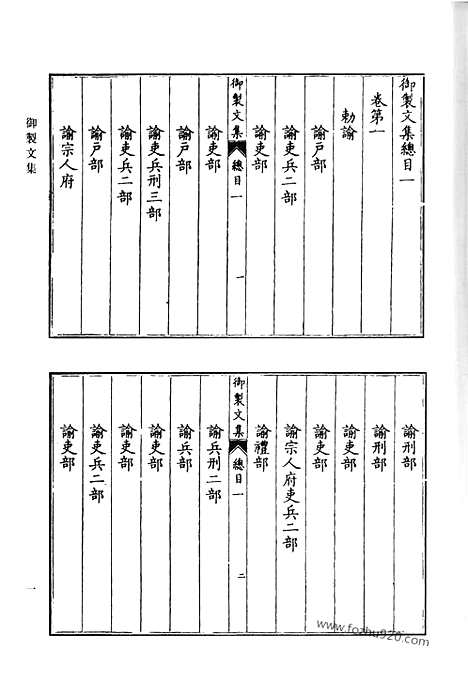 御製文集總目一
卷第一
勅諭
諭戶部
諭吏兵二部
諭吏部
御製文集 總目一 一
諭吏部
諭戶部
諭吏兵刑三部
諭吏兵二部
諭戶部
諭宗人府
御製文集
諭刑部
諭刑部
諭吏部
諭吏部
諭宗人府吏兵二部
諭禮部
御製文集 總目一 二
諭兵刑二部
諭兵部
諭吏部
諭吏部
諭吏兵二部
諭吏部
一
www.fozhu920.com